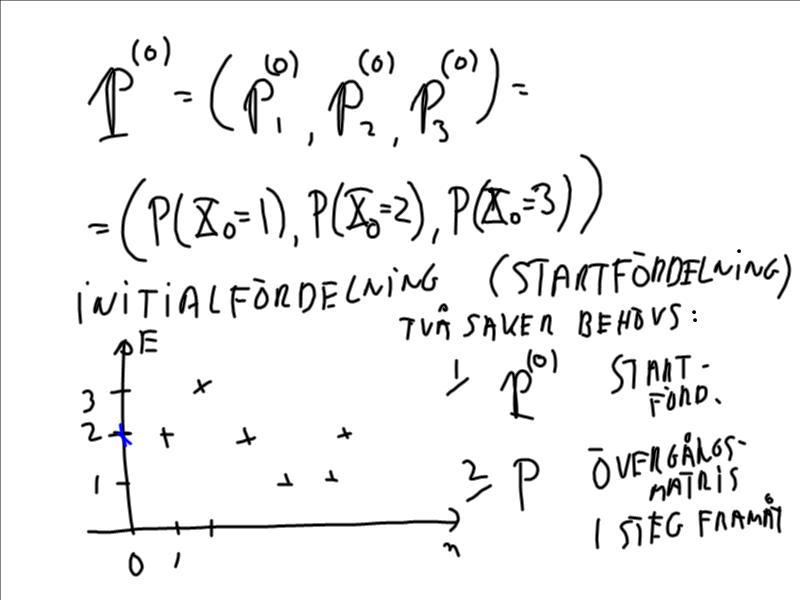 P^(0) = (P_1^(0), P_2^(0), P_3^(0)) =
= (P(X_0=1), P(X_0=2), P(X_0=3))
INITIALFÖRDELNING (STARTFÖRDELNING)
TVÅ SAKER BEHÖVS:
1) P^(0) START-
FÖRD.
2) P ÖVERGÅNGS-
MATRIS
1 STEG FRAMÅT
E
3
2
1
0 1 n